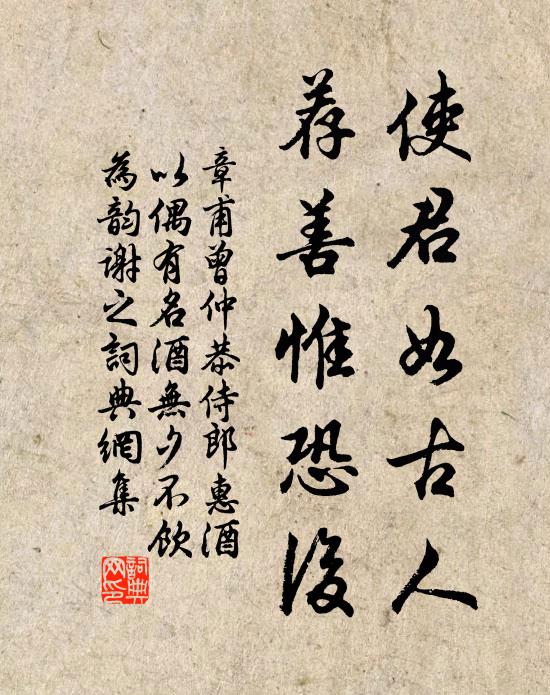 使君如古人
荐善惟恐後
章甫曾仲恭侍郎惠酒
以偶有名酒無夕不飲
為韵謝之詞典網集
詞典
网印